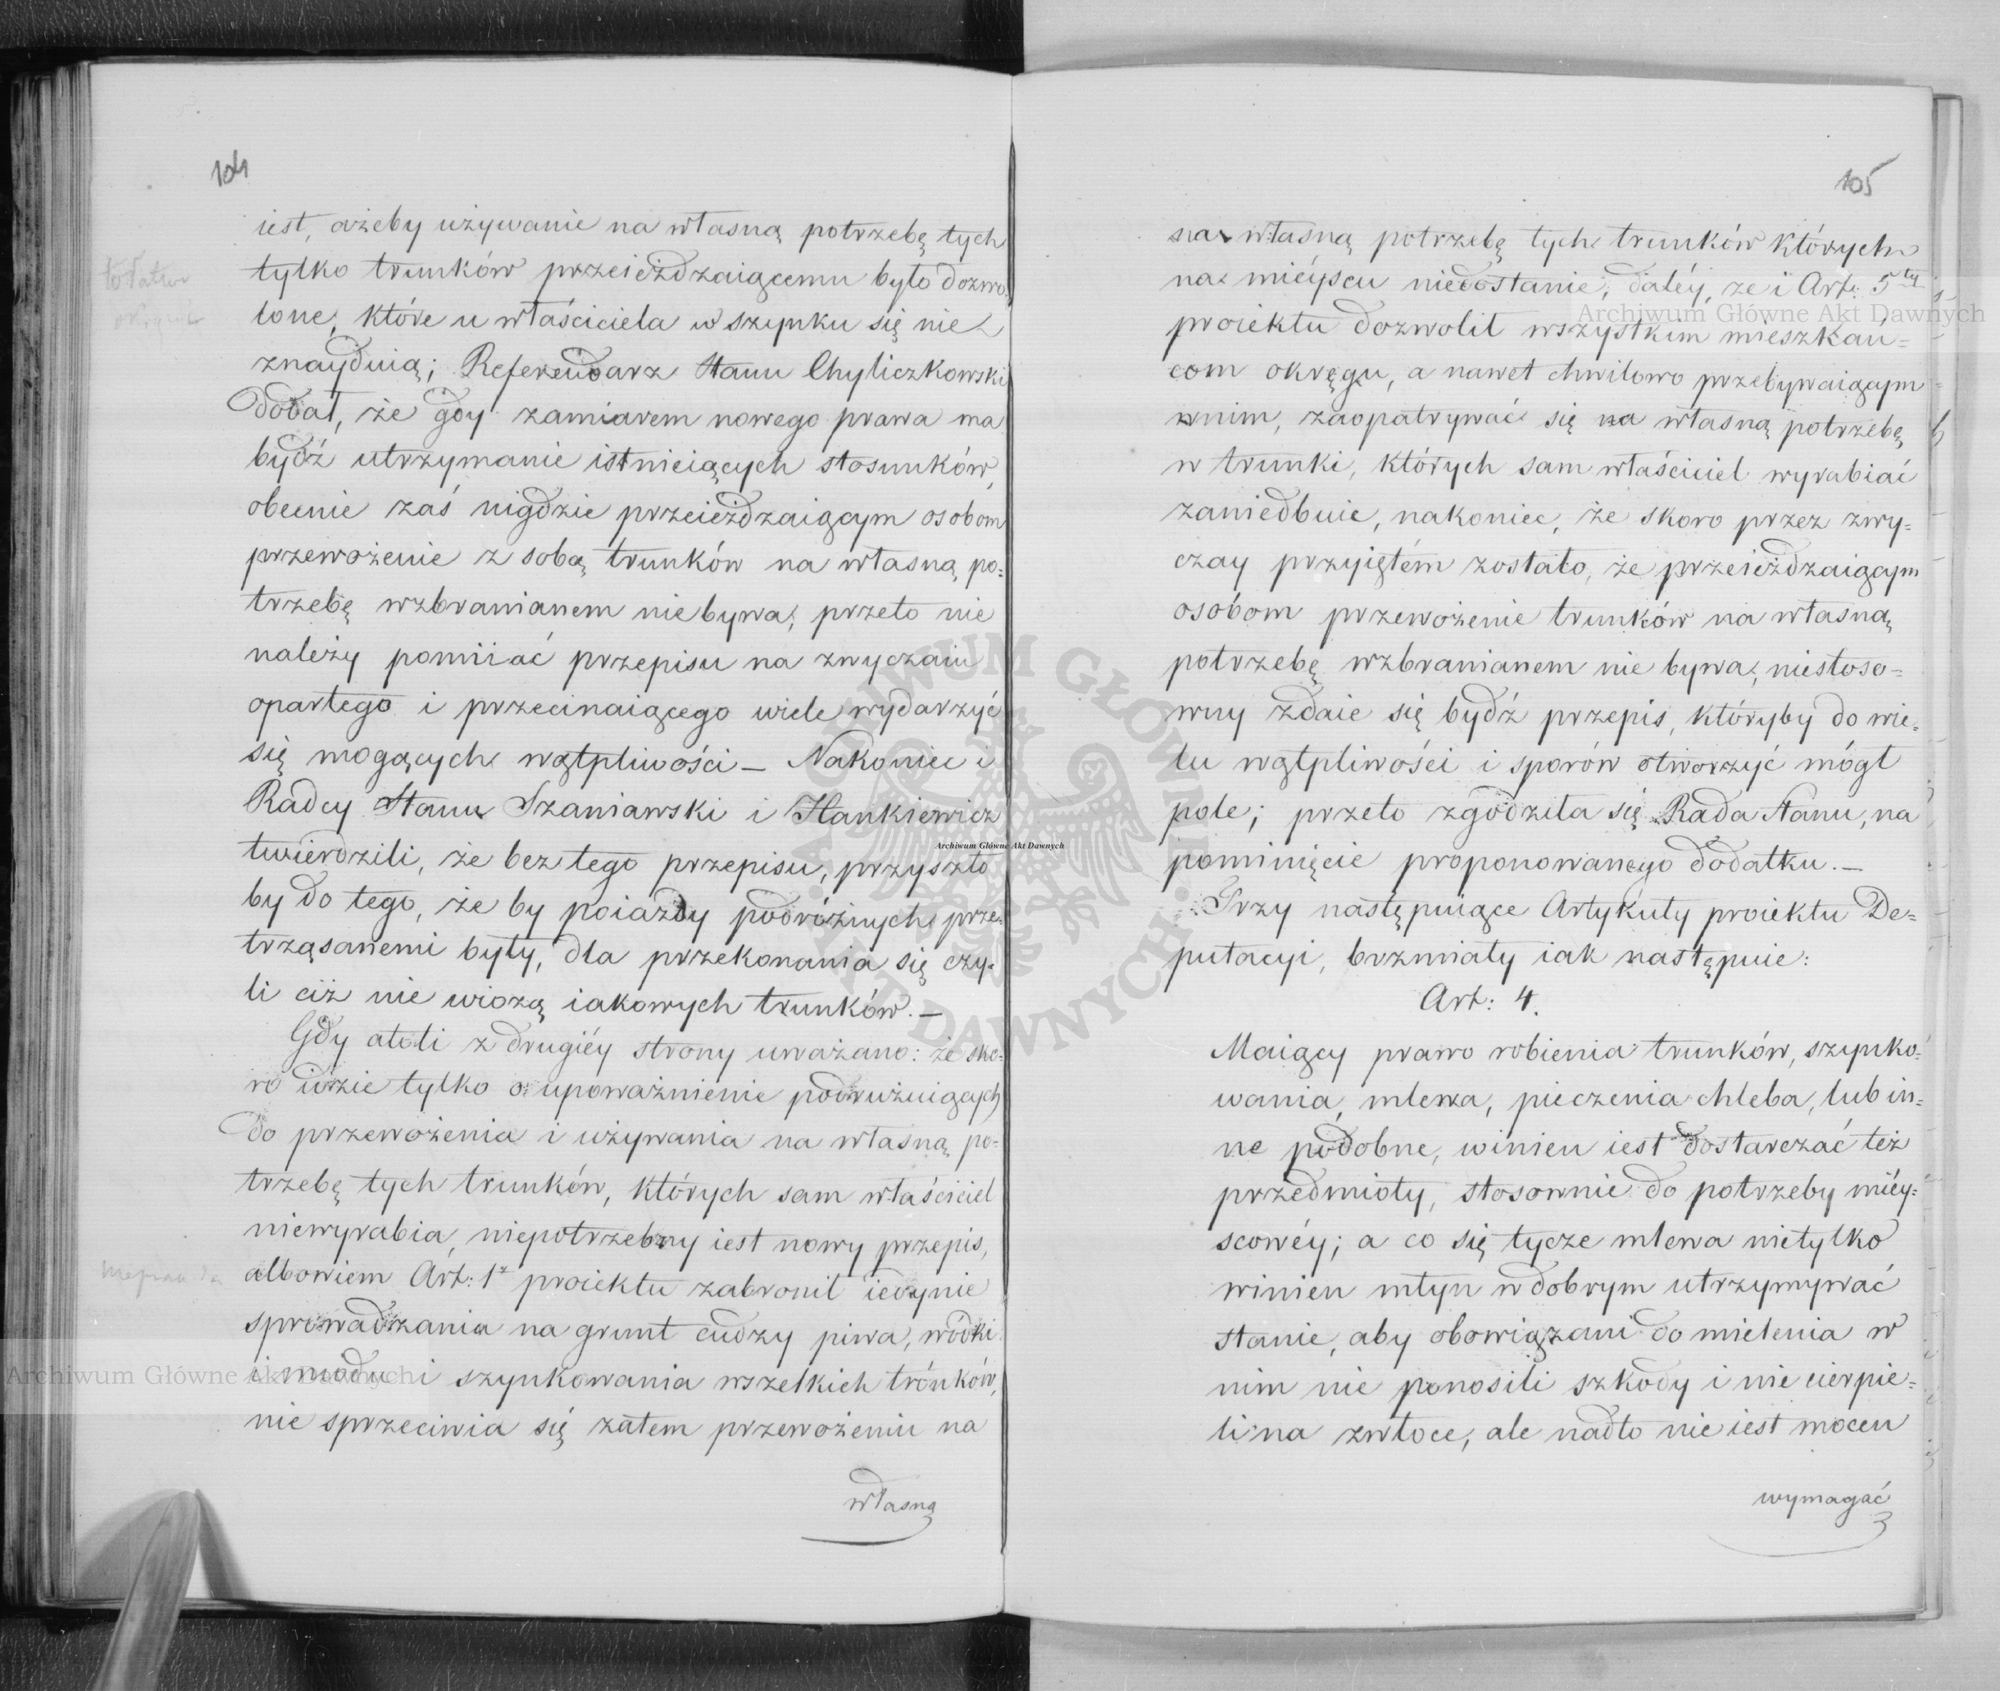 104
iest, ażeby używanie na własną potrzebę tych
tylko trunków przeieżdzaiącemu było dozwo-
lone, które u właściciela w szynku się nie
znayduią; Referendarz Stanu Chyliczkowski
dodał, że gdy zamiarem nowego prawa ma
bydź utrzymanie istnieiących stosunków,
obecnie zaś nigdzie przeieżdzaiącym osobom
przewożenie z sobą trunków na własną po-
trzebę wzbranianem niebywa; przeto nie
należy pomiiać przepisu na zwyczaiu
opartego i przecinaiącego wiele wydarzyć
się mogących wątpliwości — Nakoniec i
Radcy Stanu Szaniawski i Hankiewicz
twierdzili, że bez tego przepisu, przyszło
by do tego, że by poiazdy podróżnych prze-
trząsanemi były, dla przekonania się czy-
li ciż nie wiozą iakowych trunków. —
Gdy atoli z drugiéy strony uważano: że sko-
ro idzie tylko o upoważnienie podróżuiących
do przewożenia i używania na własną po-
trzebę tych trunków, których sam właściciel
niewyrabia, niepotrzebny iest nowy przepis,
albowiem Art: 1z proiektu zabronił iedynie
sprowadzania na grunt cudzy piwa, wódki
i miodu i szynkowania wszelkich trónków,
nie sprzeciwia się zatem przewożeniu na
własną
105
na własną potrzebę tych trunków których
na mieyscu niedostanie; daléy, że i Art: 5ty
proiektu dozwolił wszystkim mieszkań=
com okręgu, a nawet chwilowo przebywaiącym
w nim, zaopatrywać się na własną potrzebę,
w trunki, których sam właściciel wyrabiać
zaniedbuie, nakoniec, że skoro przez zwy=
czay przyiętém zostało, że przeieżdzaiącym
osobom przewożenie trunków na własną
potrzebę wzbranianem nie bywa, niestoso=
wny zdaie się bydź przepis, któryby do wie-
lu wątpliwości i sporów otworzyć mógł
pole; przeto zgodziła się Rada Stanu, na
pominięcie proponowanego dodatku. —
Trzy następuiące Artykuły proiektu De=
putacyi, brzmiały iak następuie:
Art: 4.
Maiący prawo robienia trunków, szynko=
wania, mlewa, pieczenia chleba, lub in=
ne podobne, winien iest dostarczać też
przedmioty, stosownie do potrzeby miéy=
scowéy; a co się tycze mlewa nietylko
winien młyn w dobrym utrzymywać
stanie, aby obowiązani do mielenia w
nim nie ponosili szkody i nie cierpie=
li na zwłoce, ale nadto nie iest mocen
wymagać
Archiwum Główne Akt Dawnych
Archiwum Główne Akt Dawnych
Archiwum Główne Akt Dawnych
ARCHIWUM GŁÓWNE AKT DAWNYCH